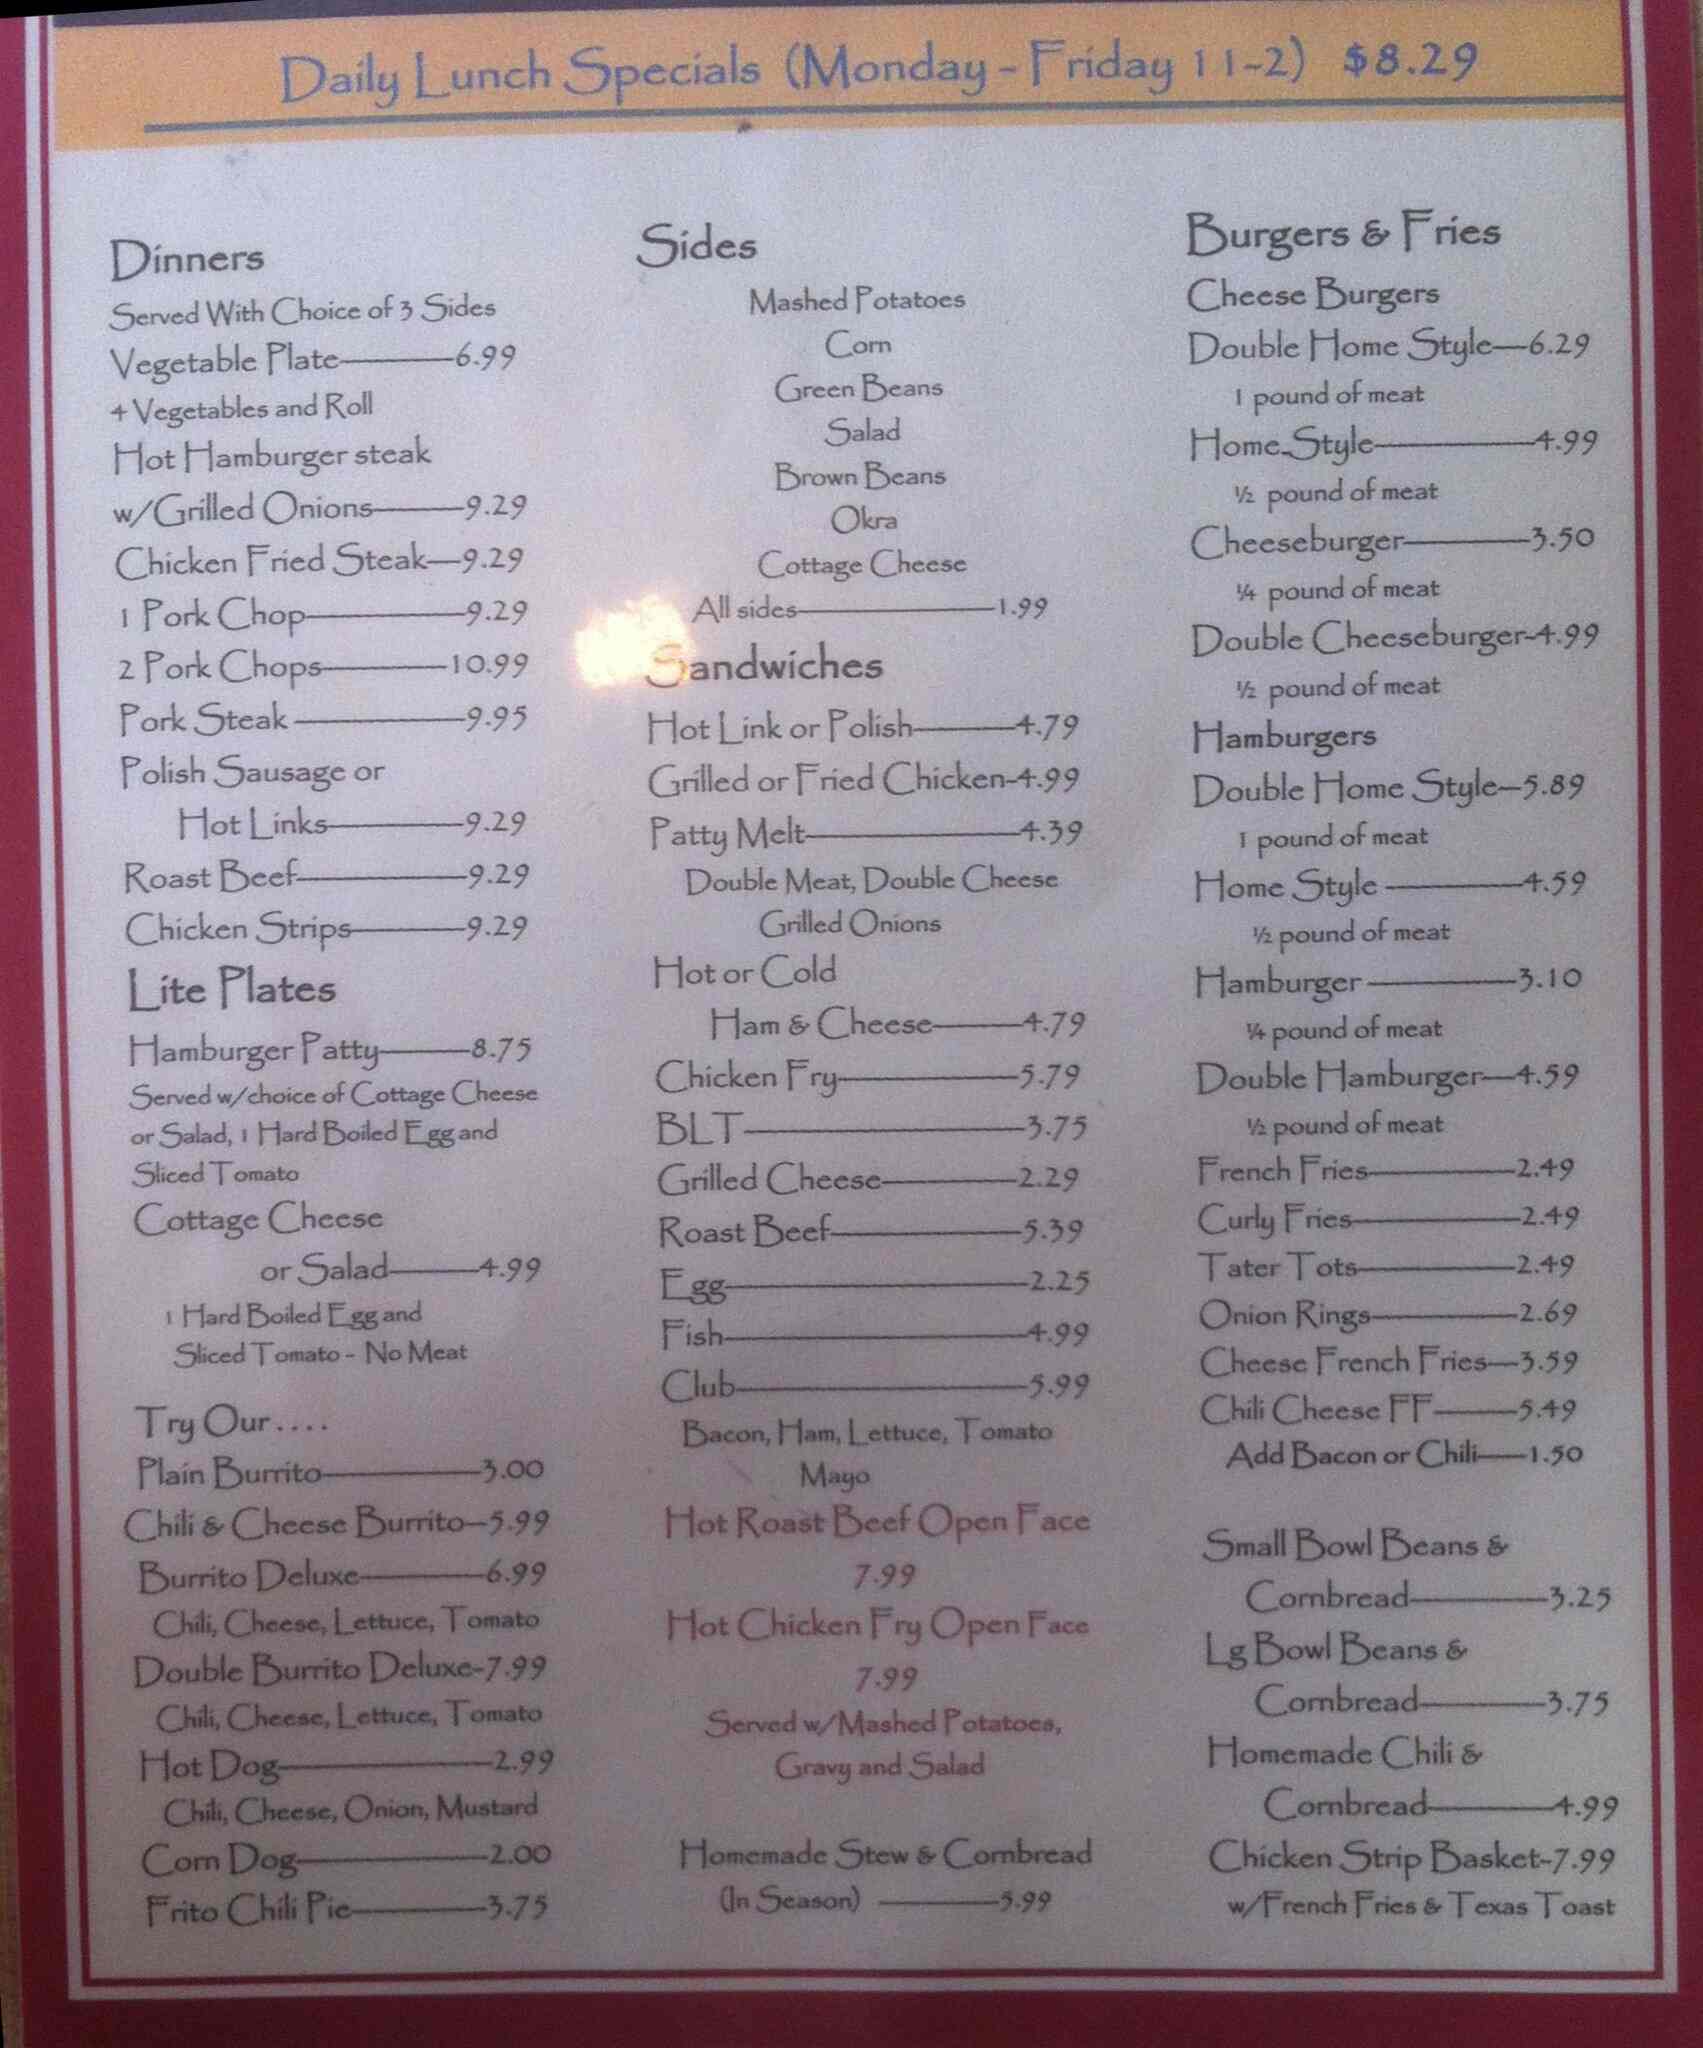 Daily Lunch Specials (Monday - Friday 11-2) $8.29
Dinners
Served With Choice of 3 Sides
Vegetable Plate 6.99
4 Vegetables and Roll
Hot Hamburger steak
w/Grilled Onions 9.29
Chicken Fried Steak 9.29
1 Pork Chop 9.29
2 Pork Chops 10.99
Pork Steak 9.95
Polish Sausage or
Hot Links 9.29
Roast Beef 9.29
Chicken Strips 9.29
Lite Plates
Hamburger Patty 8.75
Served w/choice of Cottage Cheese
or Salad, 1 Hard Boiled Egg and
Sliced Tomato
Cottage Cheese
or Salad 4.99
1 Hard Boiled Egg and
Sliced Tomato - No Meat
Try Our....
Plain Burrito 3.00
Chili & Cheese Burrito 5.99
Burrito Deluxe 6.99
Chili, Cheese, Lettuce, Tomato
Double Burrito Deluxe 7.99
Chili, Cheese, Lettuce, Tomato
Hot Dog 2.99
Chili, Cheese, Onion, Mustard
Corn Dog 2.00
Frito Chili Pie 3.75
Sides
Mashed Potatoes
Corn
Green Beans
Salad
Brown Beans
Okra
Cottage Cheese
All sides 1.99
Sandwiches
Hot Link or Polish 4.79
Grilled or Fried Chicken-4.99
Patty Melt 4.39
Double Meat, Double Cheese
Grilled Onions
Hot or Cold
Ham & Cheese 4.79
Chicken Fry 5.79
BLT 3.75
Grilled Cheese 2.29
Roast Beef 5.39
Egg 2.25
Fish 4.99
Club 5.99
Bacon, Ham, Lettuce, Tomato
Mayo
Hot Roast Beef Open Face
7.99
Hot Chicken Fry Open Face
7.99
Served w/Mashed Potatoes,
Gravy and Salad
Homemade Stew & Cornbread
(In Season) 5.99
Burgers & Fries
Cheese Burgers
Double Home Style 6.29
1 pound of meat
Home Style 4.99
½ pound of meat
Cheeseburger 3.50
¼ pound of meat
Double Cheeseburger-4.99
½ pound of meat
Hamburgers
Double Home Style 5.89
1 pound of meat
Home Style 4.59
½ pound of meat
Hamburger 3.10
¼ pound of meat
Double Hamburger 4.59
½ pound of meat
French Fries 2.49
Curly Fries 2.49
Tater Tots 2.49
Onion Rings 2.69
Cheese French Fries 3.59
Chili Cheese FF 5.49
Add Bacon or Chili 1.50
Small Bowl Beans &
Cornbread 3.25
Lg Bowl Beans &
Cornbread 3.75
Homemade Chili &
Cornbread 4.99
Chicken Strip Basket-7.99
w/French Fries & Texas Toast